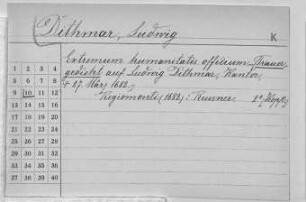 Dithmar, Ludwig
K
Extremum humanitatis officium. Trauer-
gedicht auf Ludwig Dithmar, Kantor,
† 27. März 1682.
Regiomonti (1682): Reusner. 2°
1 2 3 4
5 6 7 8
9 10 11 12
13 14 15 16
17 18 19 20
21 22 23 24
25 26 27 28
29 30 31 32
33 34 35 36
37 38 39 40